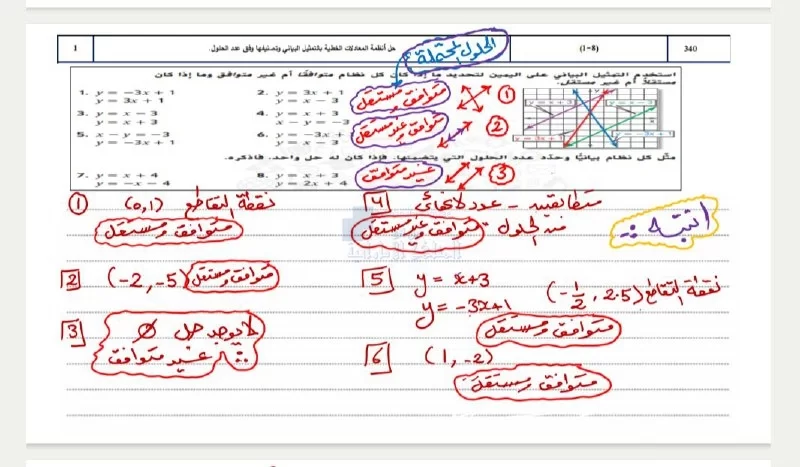 1
حل أنظمة المعادلات الخطية بالتمثيل البياني وتصنيفها وفق عدد الحلول.
(1-8)
340
الحلول المحتملة
استخدم التمثيل البياني على اليمين لتحديد ما إذا كان كل نظام متوافقًا أم غير متوافق وما إذا كان
مستقلاً أم غير مستقل.
1. y = −3x + 1
y = 3x + 1
2. y = 3x + 1
y = x − 3
3. y = x − 3
y = x + 3
4. y = x + 3
x − y = −3
5. x − y = −3
y = −3x + 1
6. y = −3x + 1
y = x − 3
متوافق ومستقل
①
متوافق غير مستقل
②
غير متوافق
③
y = x + 3
y = x − 3
y = 3x + 1
y = −3x + 1
مثّل كل نظام بيانيًا وحدّد عدد الحلول التي يتضمنها. فإذا كان له حل واحد، فاذكره.
7. y = x + 4
y = −x − 4
8. y = x + 3
y = 2x + 4
① (0,1) نقطة التقاطع
متوافق ومستقل
4 متطابقين - عدد لا نهائي
من الحلول متوافق غير مستقل
انتبه
2 (-2,-5) متوافق ومستقل
5 y = x+3
y = -3x+1
نقطة التقاطع (-1/2, 2.5)
متوافق ومستقل
3 لا يوجد حل ∅
∴ غير متوافق
6 (1,-2)
متوافق ومستقل